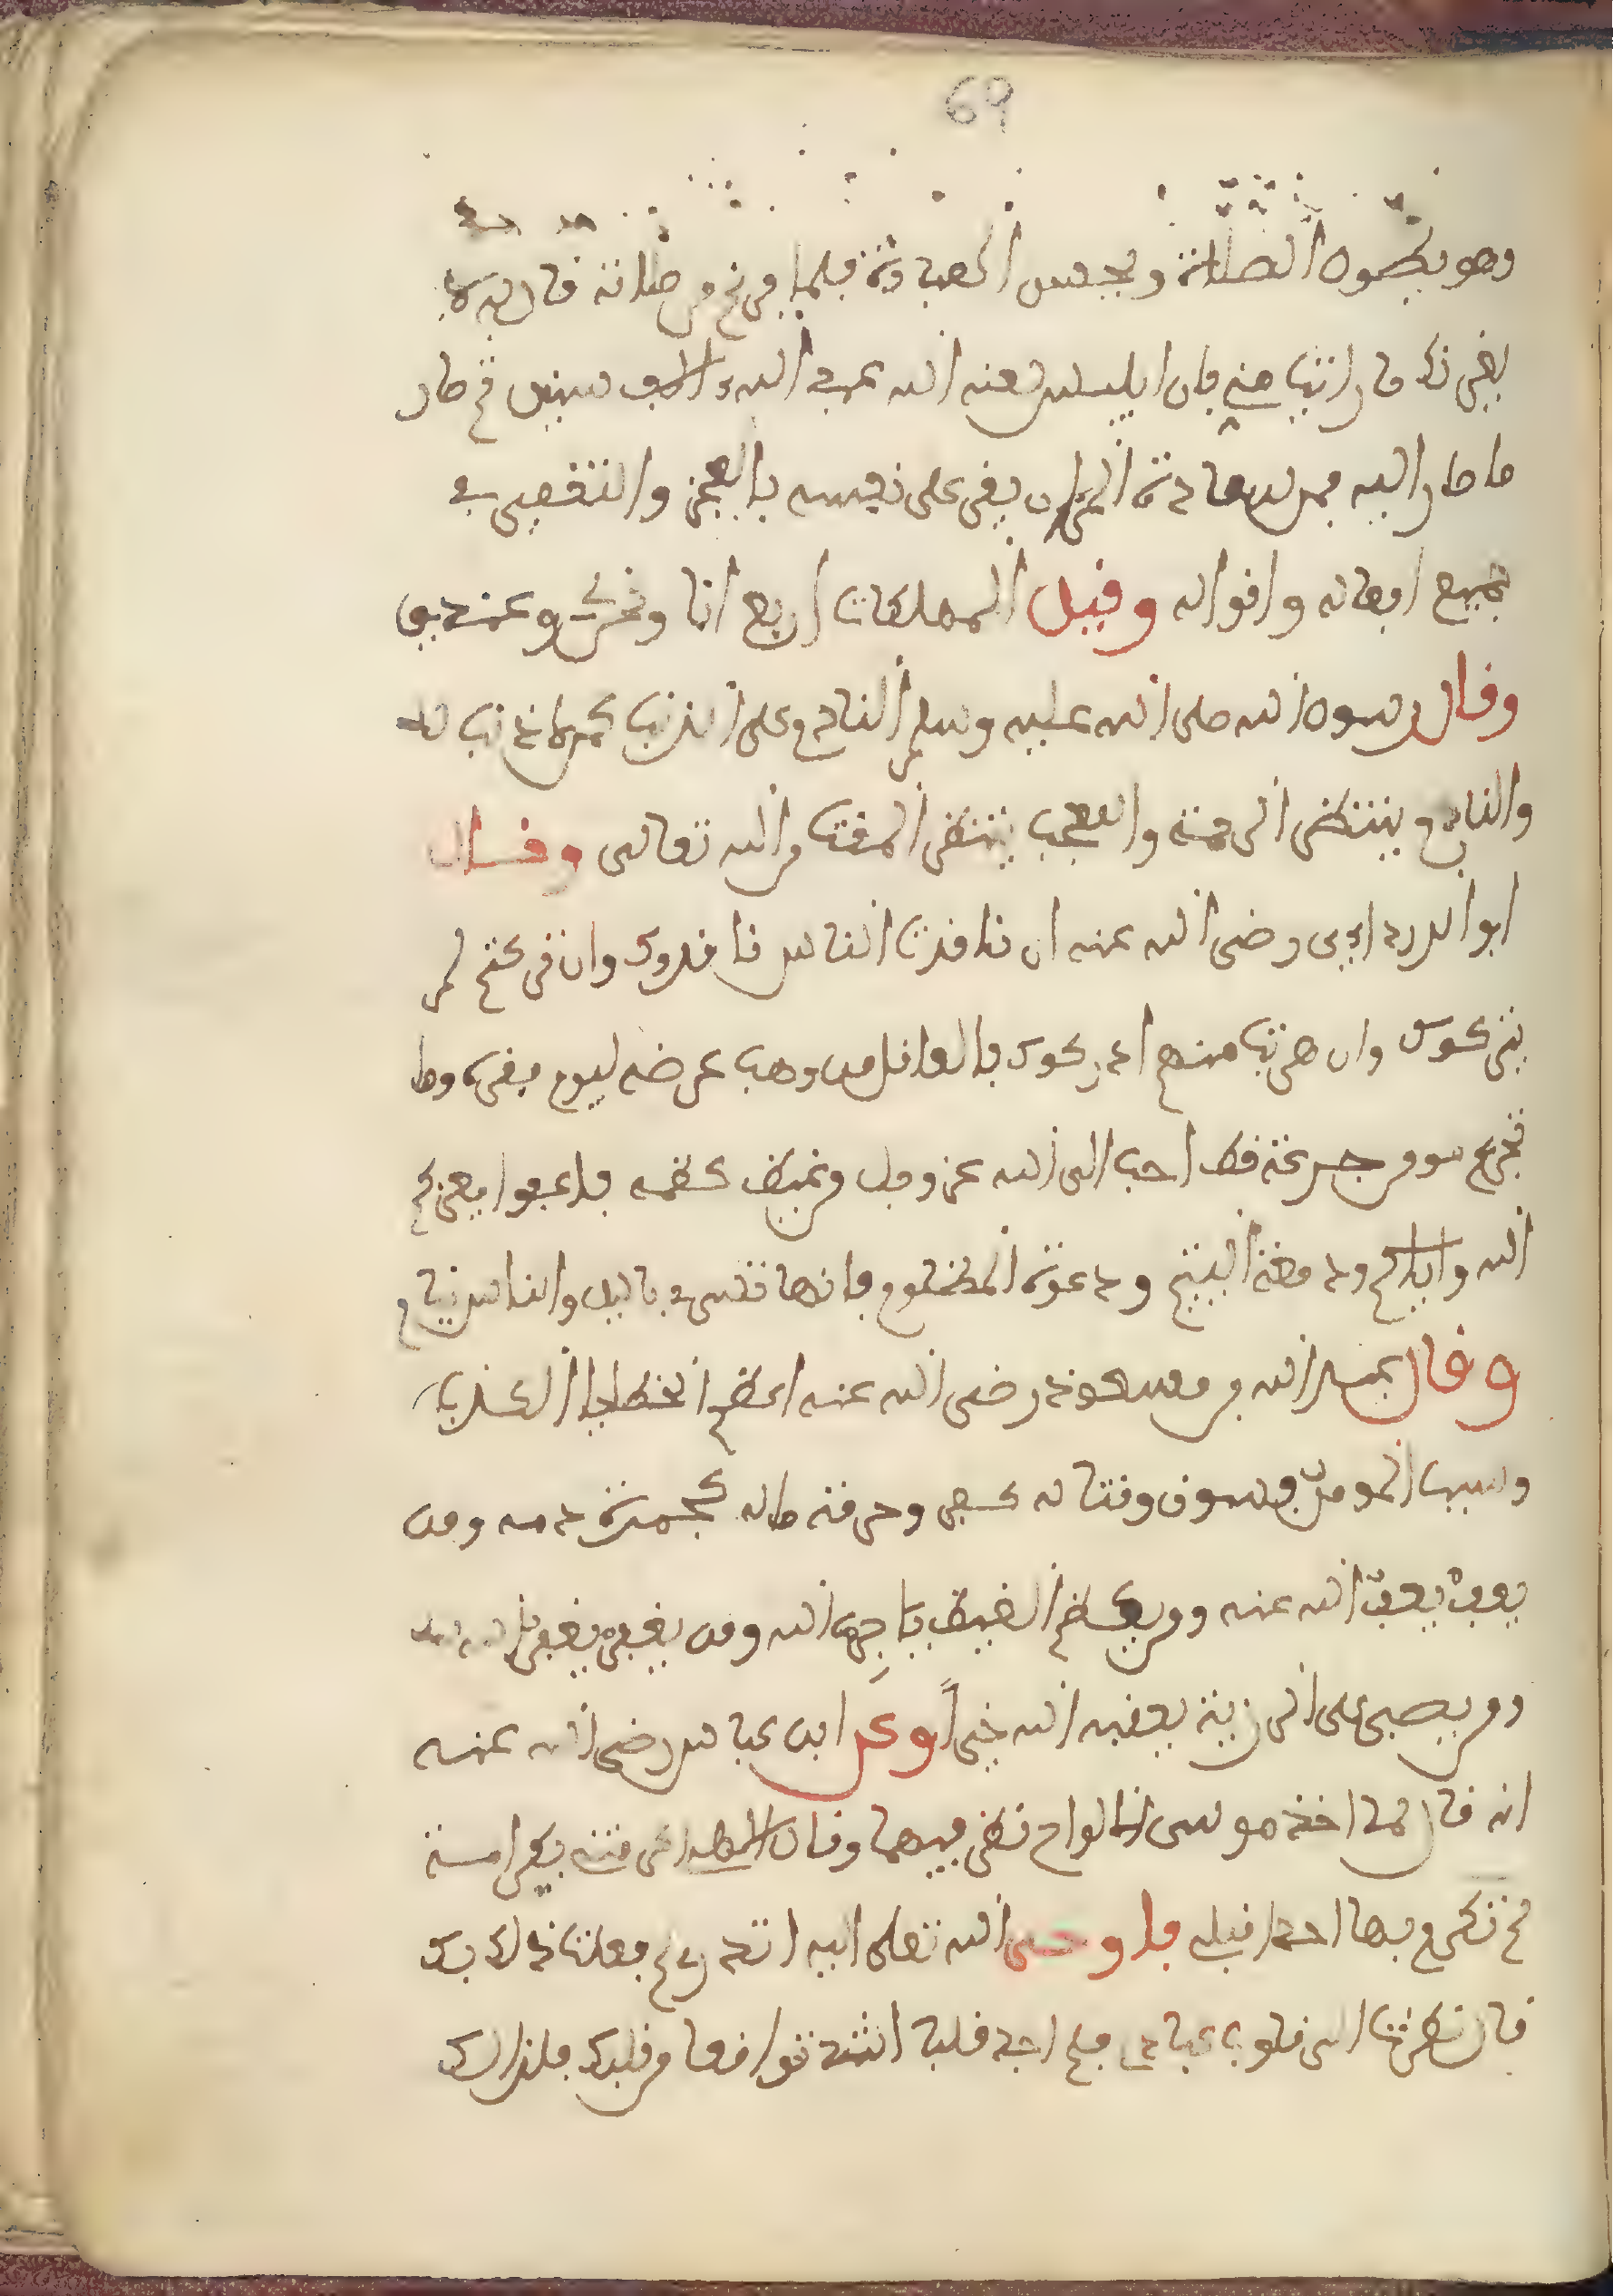 69
وهو يطول الصلاة ويحسن العبادة فلما فرغ من صلاته قال له لا
يغرنك ما رايت مني فان ابليس لعنه الله عبد الله والف سنين ثم صار
ما صار اليه فمن سعادة المرء ان يقر على نفسه بالعجز والتقصير في
جميع افعاله واقواله وقيل المهلكات اربع انا ونحن ولي وعندي
وقال رسول الله صلى الله عليه وسلم النادم على الذنب كمن لا ذنب له
والنادم ينتظر الرحمة والعجب ينتظر المقت من الله تعالى وقال
ابو الدرداء رضي الله عنه ان ناقدت الناس ناقدوك وان تركتهم لم
يتركوك وان هربت منهم ادركوك فالعاقل من وهب عرضه ليوم فقره وما
تجرع مومن جرعة قط احب الى الله عز وجل من غيظ كظمه فاعفوا يعزكم
الله واياكم ودمعة اليتيم ودعوة المظلوم فانها تسري باليل والناس نيام
وقال عبد الله بن مسعود رضي الله عنه اعظم الخطايا الكذب
وسب المومن فسوق وقتاله كفر وحرمة ماله كحرمة دمه ومن
يعف يعف الله عنه ومن يكظم الغيظ ياجره الله ومن يغفر يغفر الله له
ومن يصبر على الرزية يعقبه الله خيرا وعن ابن عباس رضي الله عنه
انه قال لما اخذ موسى الالواح نظر فيها وقال الهي اكرمتني بكرامة
لم تكرم بها احدا قبلي فاوحى الله تعلى اليه اتدري لم فعلت ذلك بك
قال نظرت الى قلوب عبادي فلم اجد قلبا اشد تواضعا من قلبك فلذلك